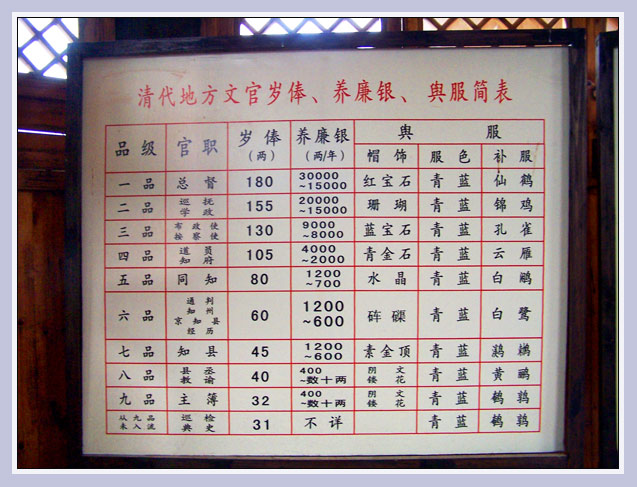 清代地方文官岁俸、养廉银、舆服简表
品级 官职 岁俸(两) 养廉银(两/年) 舆服
帽饰 服色 补服
一品 总督 180 30000~15000 红宝石 青蓝 仙鹤
二品 巡抚 学政 155 20000~15000 珊瑚 青蓝 锦鸡
三品 布政使 按察使 130 9000~8000 蓝宝石 青蓝 孔雀
四品 道员 知府 105 4000~2000 青金石 青蓝 云雁
五品 同知 80 1200~700 水晶 青蓝 白鹇
六品 通判 知州 京知县 经历 60 1200~600 砗磲 青蓝 白鹭
七品 知县 45 1200~600 素金顶 青蓝 鸂鶒
八品 县丞 教谕 40 400~数十两 阴文镂花 青蓝 黄鹂
九品 主薄 32 400~数十两 阴文镂花 青蓝 鹌鹑
从九品 未入流 巡检 典史 31 不详 青蓝 鹌鹑